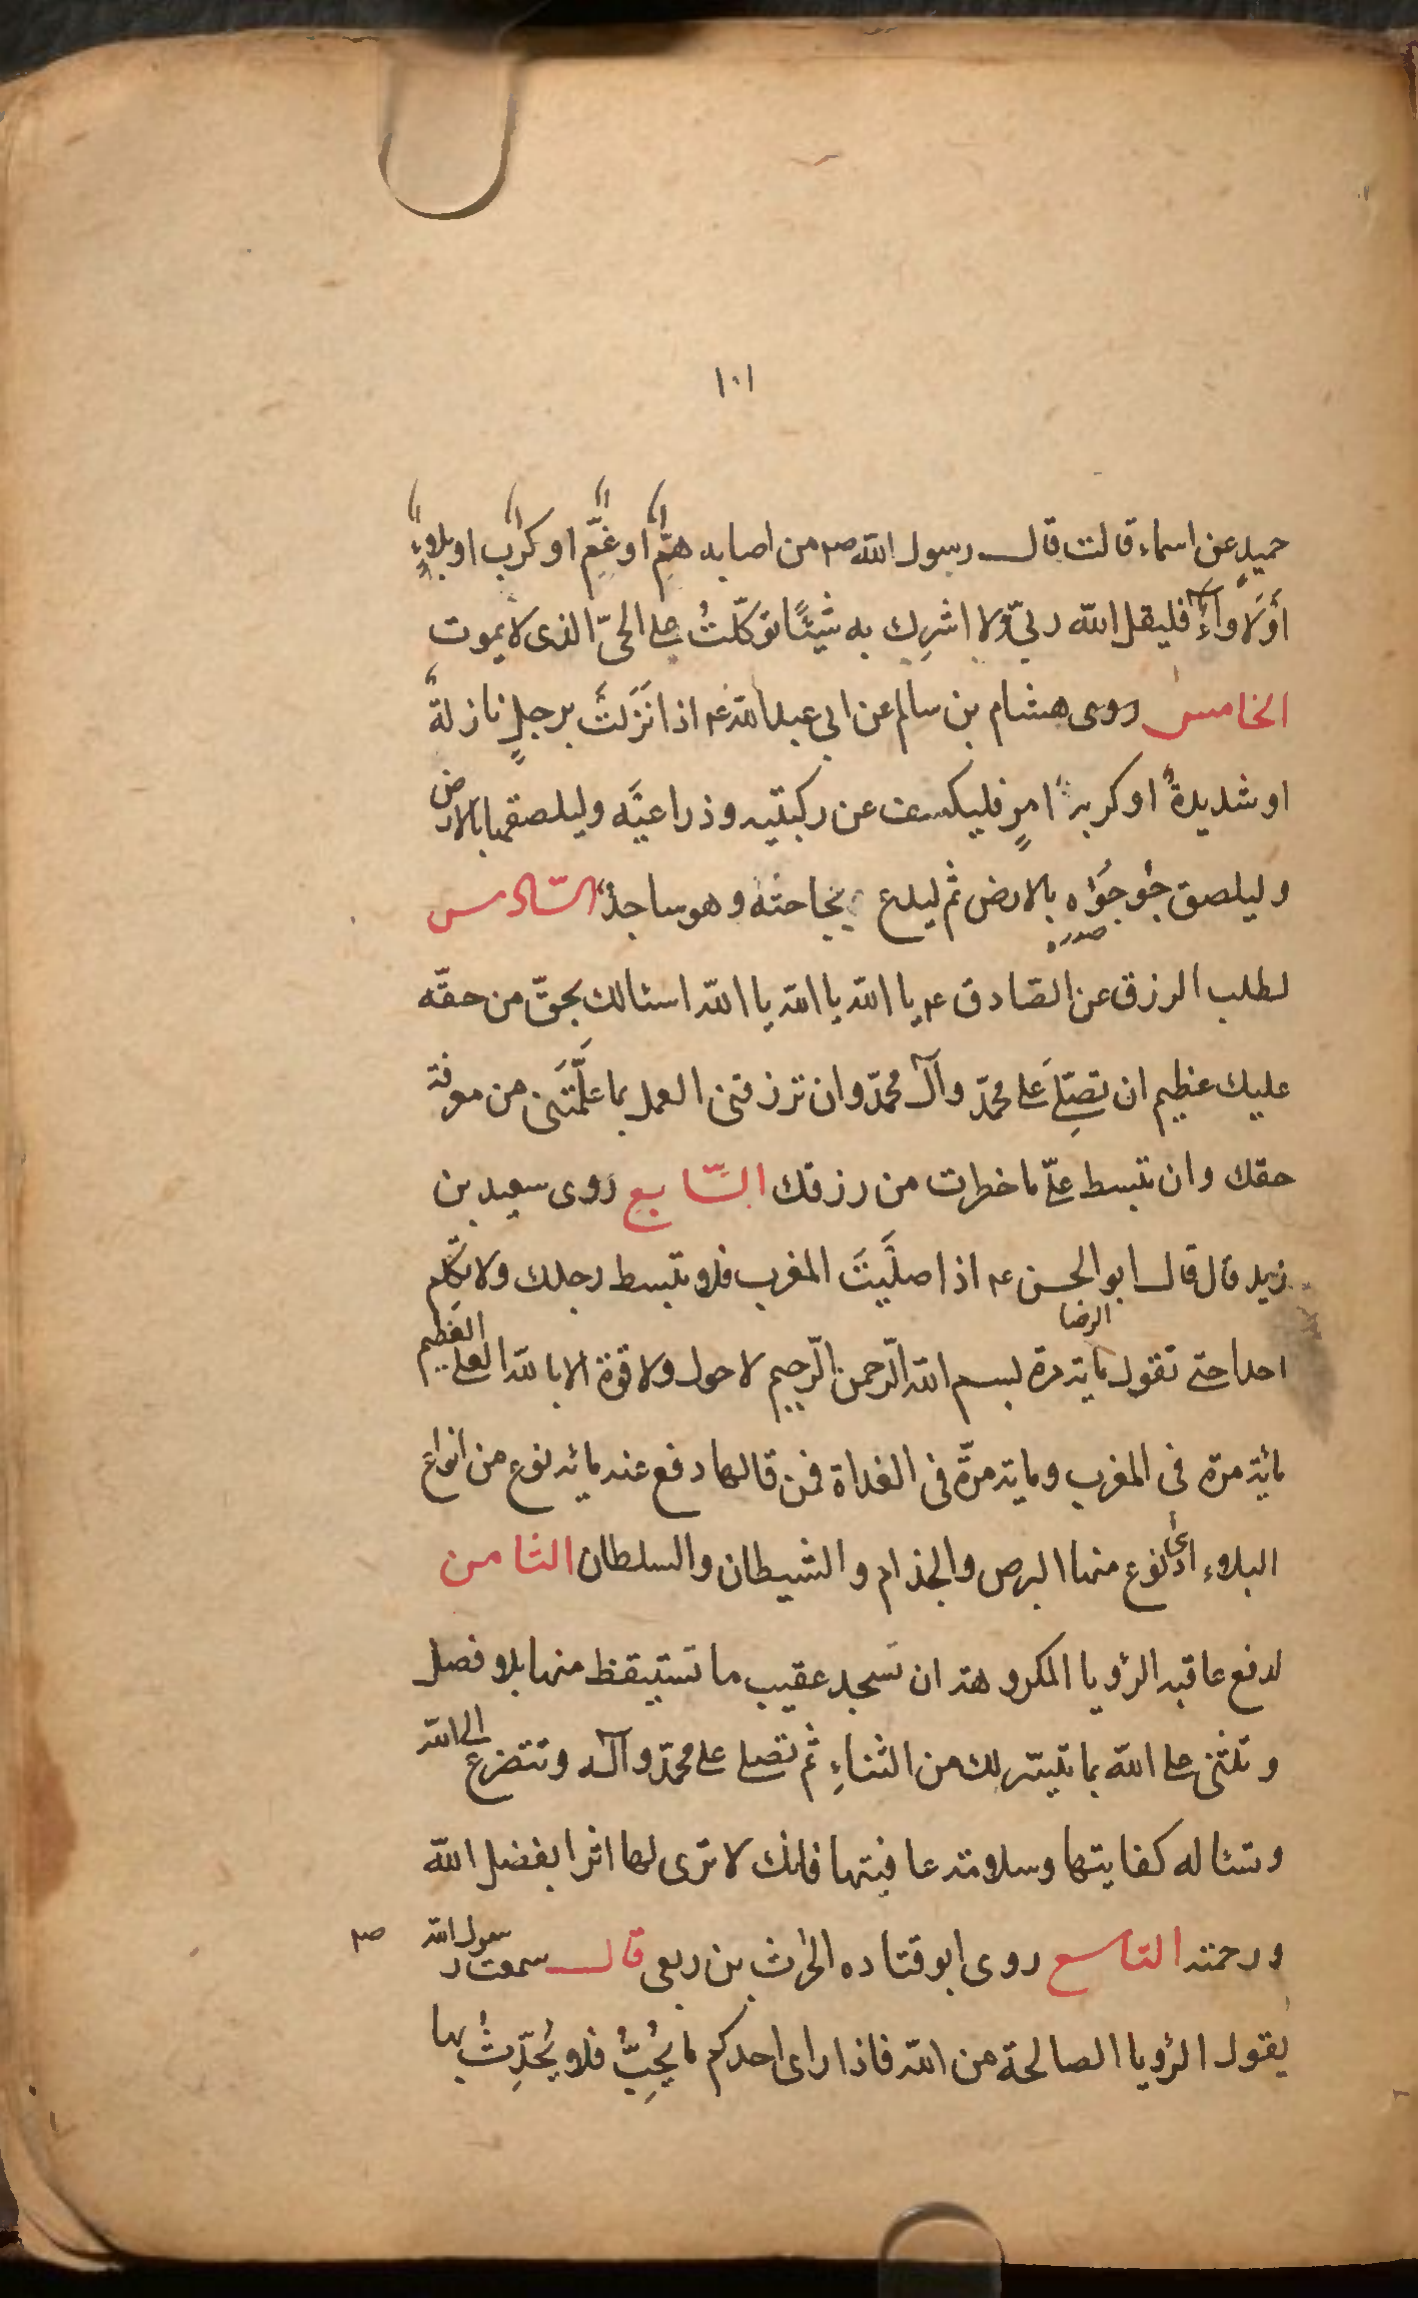 ١٠١
حميد عن اسماء قالت قال رسول الله ص من اصابه همٌّ او غمٌّ او كربٌ او بلاءٌ
أو لَأواءٌ فليقل الله ربّي ولا اشرِك به شيئًا توكّلتُ على الحىّ الذى لا يموت
الخامس روى هشام بن سالم عن ابى عبد الله ع اذا نَزَلَتْ برجلٍ نازلةٌ
او شديدةٌ او كربةٌ امرٍ فليكشف عن ركبتيه وذراعيَه وليلصقهما بالارض
وليلصق جُوجُؤاه بالارض ثم ليدع بحاجته وهو ساجدٌ السّادس
صدره
لطلب الرزق عن الصّادق ع يا الله يا الله يا الله اسئالك بحقّ من حقّه
عليك عظيم ان تصلِّيَ على محمّد وآل محمّد وان ترزقنى العمل بما علَّمتَنى من معرفة
حقك وان تبسط علىّ ما خطرت من رزقك السّابع روى سعيد بن
زيد قال قال ابو الحسن ع اذا صلَّيتَ المغرب فلا تبسط رجلك ولا تكلّم
الرضا
احدا حتى تقول مایة مرة بسم الله الرّحمن الرّحيم لا حول ولا قوّة الا بالله العلى العظيم
مائة مرة فى المغرب وماية مرّة فى الغداة فمن قالها دفع عنه مائة نوع من انواع
البلاء ادنى نوع منها البرص والجذام والشيطان والسلطان الثامن
لدفع عاقبة الرؤيا المكروهة ان تسجد عقيب ما تستيقظ منها بلا فصل
وتثنى على الله بما تيسّر لك من الثناءِ ثم تصلى على محمّد وآله وتتضرع الى الله
وتسئاله كفايتها وسلامة عاقبتها فانك لا ترى لها اثرا بفضل الله
ورحمته التاسع روى ابو قتاده الحرث بن ربعى قال سمعت رسول الله ص
يقول الرؤيا الصالحة من الله فاذا راى احدكم ما يُحِبُّ فلا يُحدِّثُ بها